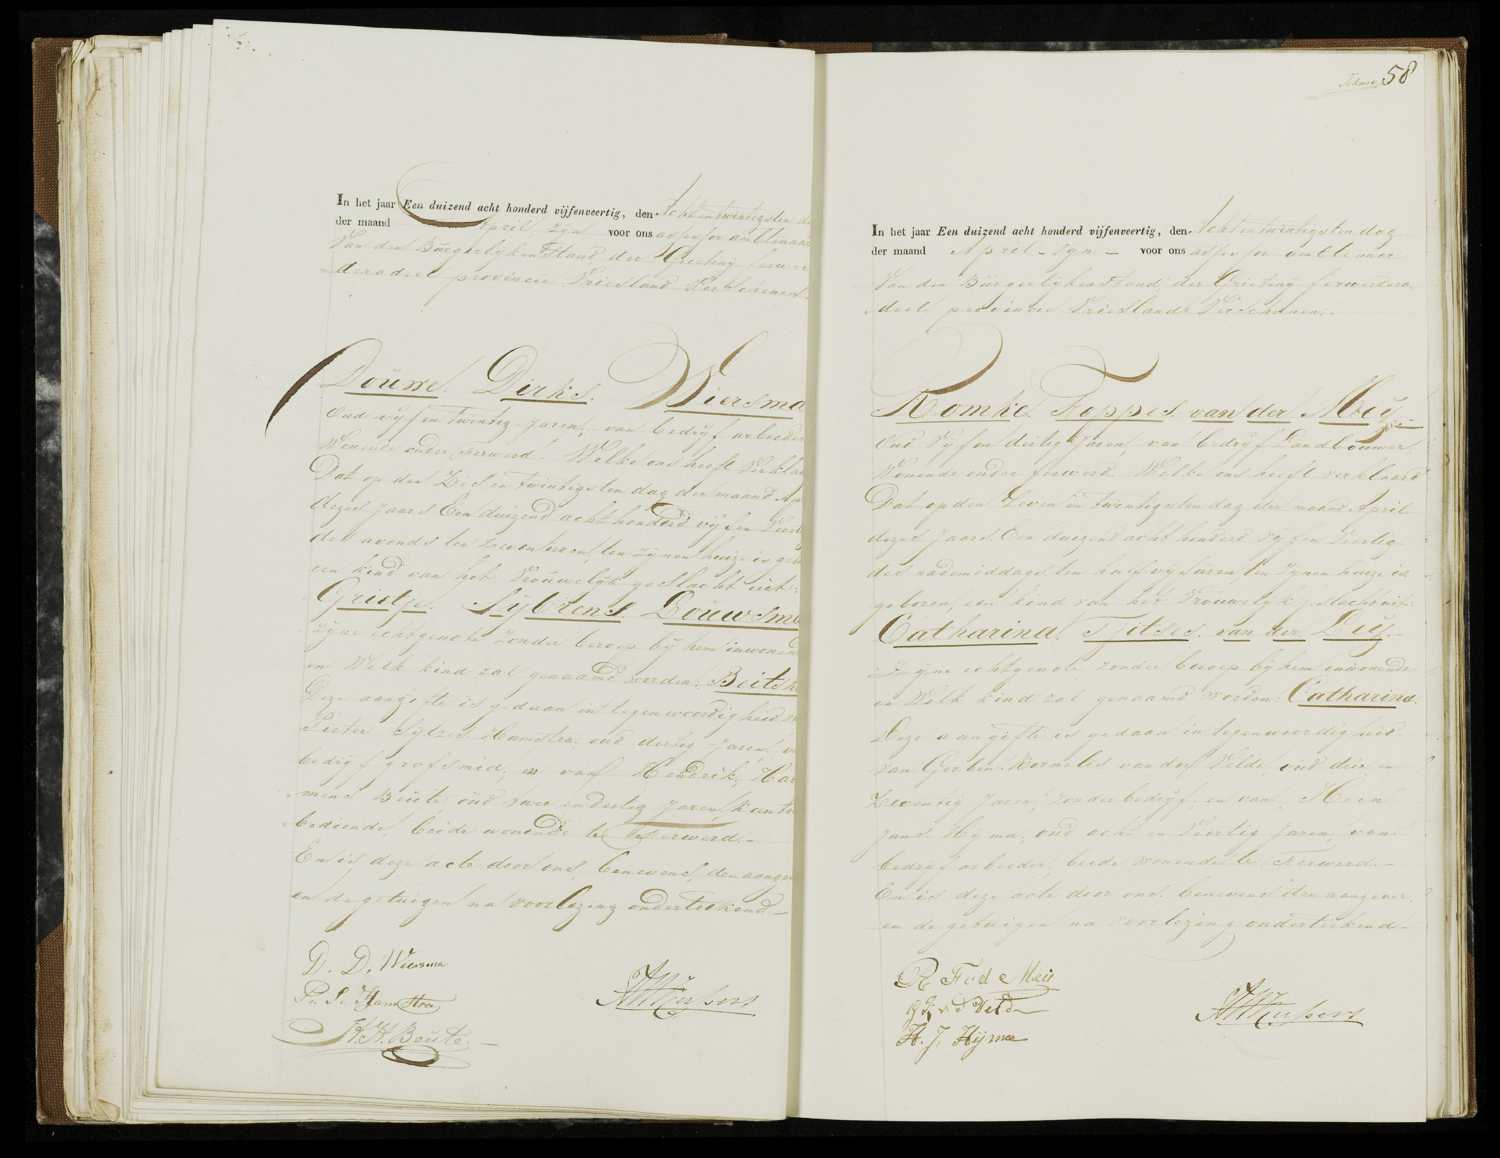 In het jaar Een duizend acht honderd vijfenveertig, den Achtentwintigsten
der maand April zyn voor ons adsessor ambtenaar
Van den Burgerlyken Stand der Grieteny
deradeel provincie Vriesland Verschenen
Douwe Dirks Wiersma
Oud vyf en twintig Jaren, van bedryf arbeider
Wonende onder Ferwerd. Welke ons heeft Verklaard
Dat op den Zes en twintigsten dag der maand April
dezes Jaars Een duizend acht honderd vyf en Veertig
des avonds ten Zeven uren, ten zynen huize is geboren
een kind van het Vrouwelyk geslacht uit
Grietje Sijbrens Douwsma
zyne echtgenote zonder beroep by hem inwonende
en Welk kind zal genaamd worden: Beitske
Deze aangifte is gedaan in tegenwoordigheid van
Pieter Sytzes Hamstra, oud dertig Jaren, van
bedryf grofsmid, en van Hendrik Har
mens Beute oud twee en dertig Jaren, Kantoor
bediende, beide wonende te Ferwerd.
En is deze acte door ons, benevens den aangever
en de getuigen na voorlezing onderteekend
D. D. Wiersma
P. S. Hamstra
H. H. Beute
58
In het jaar Een duizend acht honderd vijfenveertig, den Achtentwintigsten dag
der maand April - zyn - voor ons adsessor ambtenaar
Van den Burgerlyken Stand der Grieteny ferwerdera
deel provincie Vriesland Verschenen
Romke Foppes van der Meij
Oud Vyf en dertig Jaren, van bedryf Landbouwer
Wonende onder ferwerd Welke ons heeft verklaard
Dat op den Zeven en twintigsten dag der maand April
dezes Jaars Een duizend acht honderd vyf en Veertig
des nademiddags ten half vyf uren ten zynen huize is
geboren, een kind van het Vrouwelyk geslacht uit
Catharina Tjitses van der Leij
Zyne echtgenote zonder beroep by hem inwonende
en Welk kind zal genaamd worden: Catharina.
Deze aangifte is gedaan in tegenwoordigheid
van Gerben Kornelis van der Velde, oud drie en
Zeventig Jaren, zonder bedryf, en van Hein
Jans Hyma, oud acht en Veertig Jaren, van
bedryf arbeider, beide wonende te Ferwerd.
En is deze acte door ons, benevens den aangever,
en de getuigen na voorlezing onderteekend
R F v d Meij
G K v d Velde
H. J. Hijma